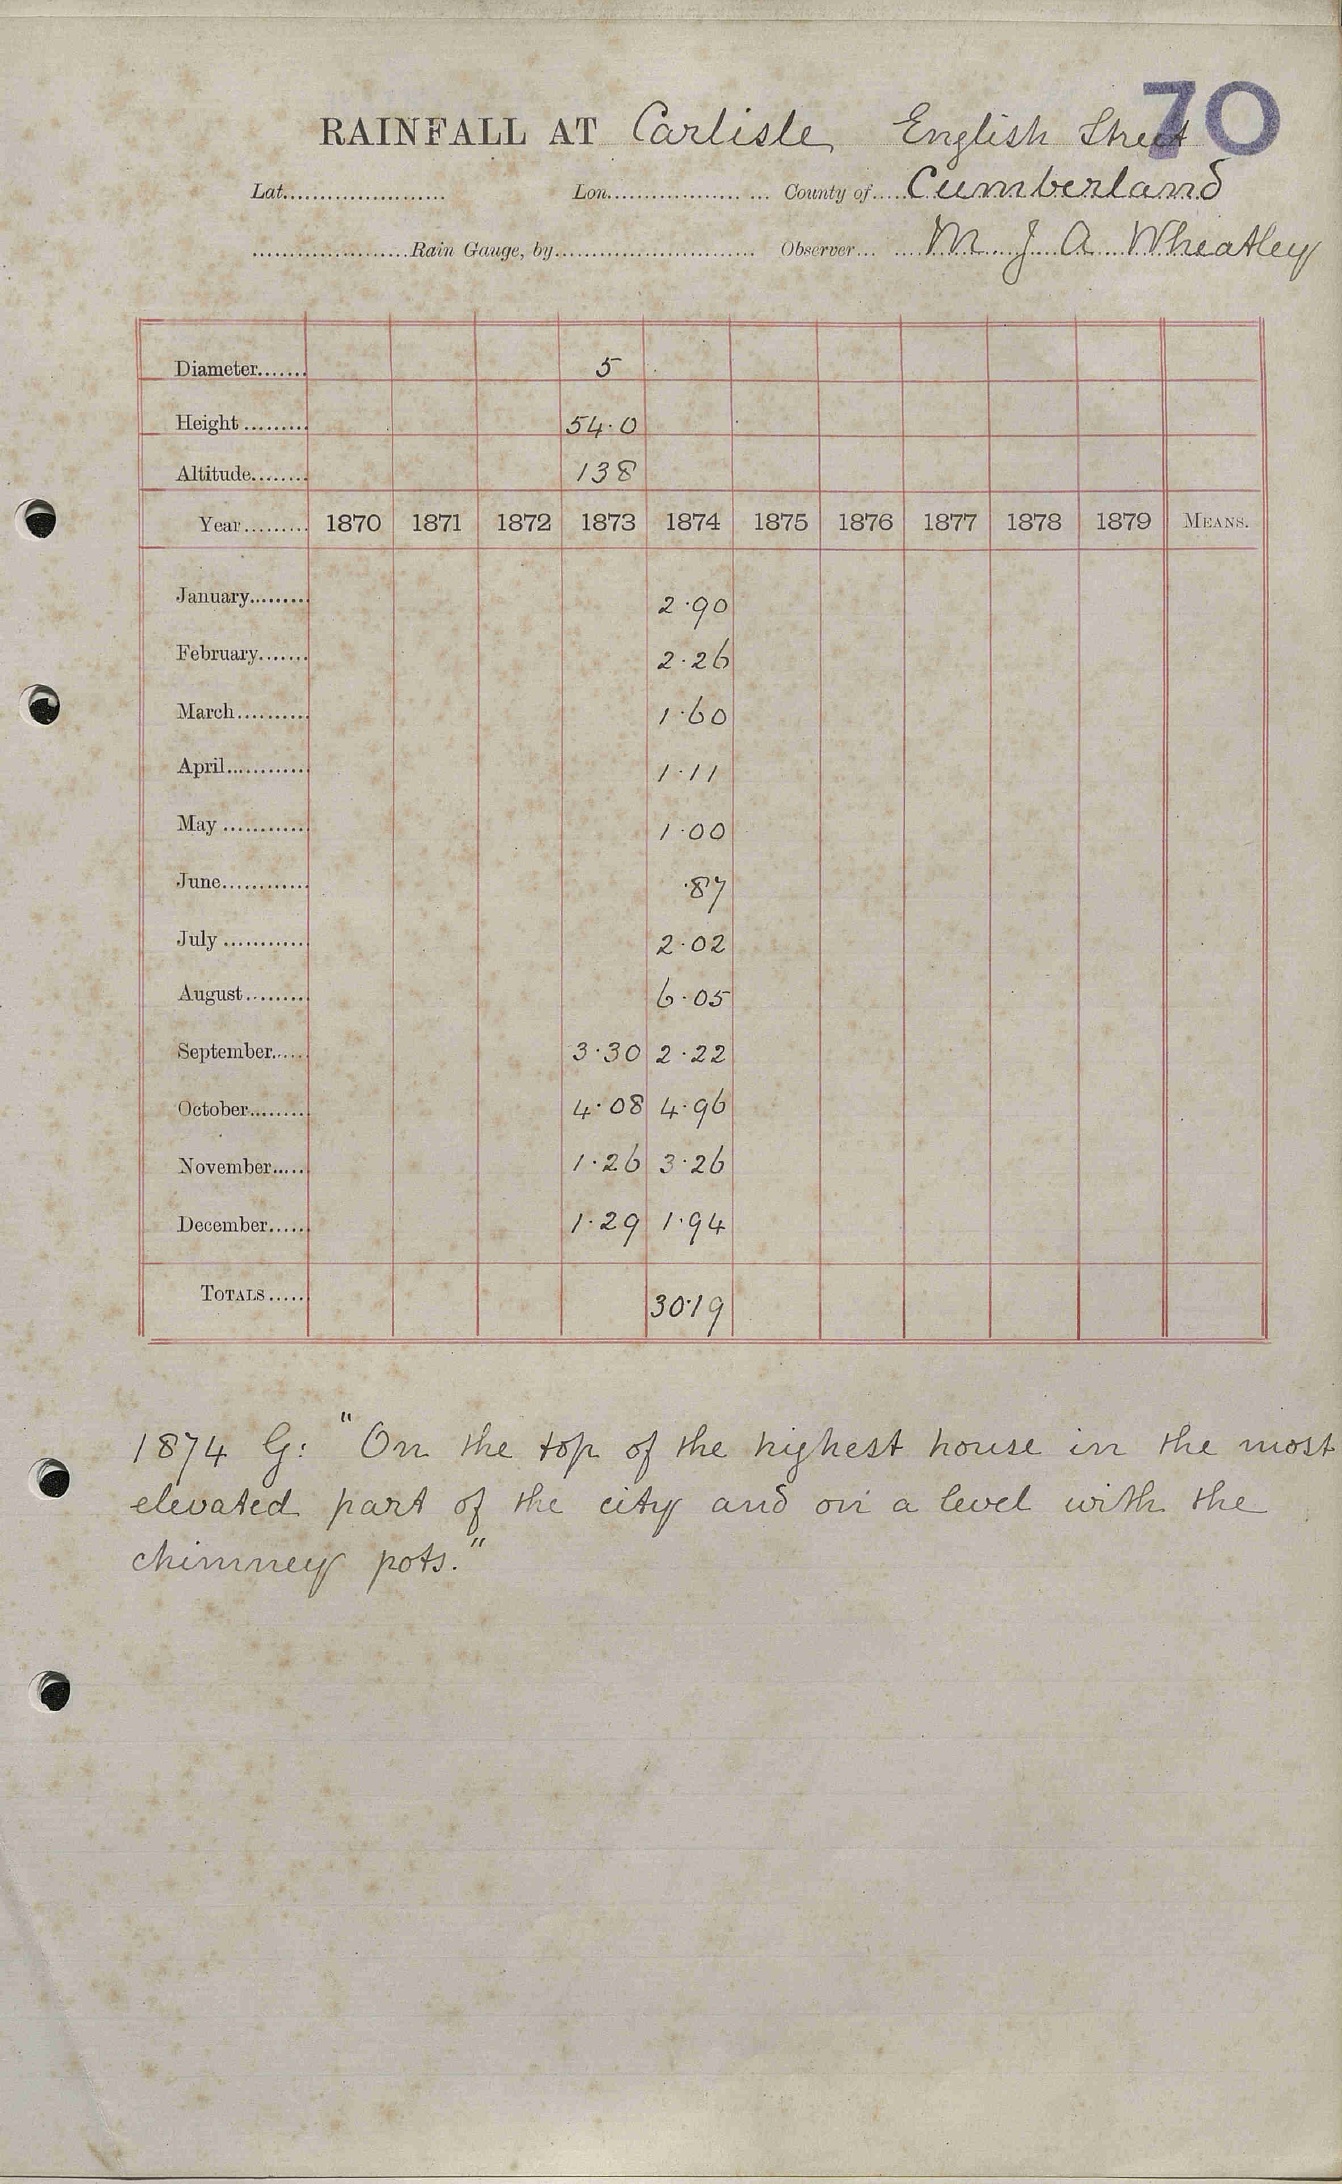 70
RAINFALL AT Carlisle, English Street
Lat..................... Lon.................. ... County of.....Cumberland
.....................Rain Gauge, by........................... Observer... ....M J A Wheatley
Diameter....... 5
Height ......... 54·0
Altitude........ 138
Year......... 1870 1871 1872 1873 1874 1875 1876 1877 1878 1879 MEANS.
January......... 2·90
February....... 2·26
March.......... 1·60
April............ 1·11
May ............ 1·00
June............ ·87
July ............ 2·02
August......... 6·05
September..... 3·30 2·22
October......... 4·08 4·96
November..... 1·26 3·26
December..... 1·29 1·94
TOTALS..... 30·19
1874 G: "On the top of the highest house in the most
elevated part of the city and on a level with the
chimney pots."